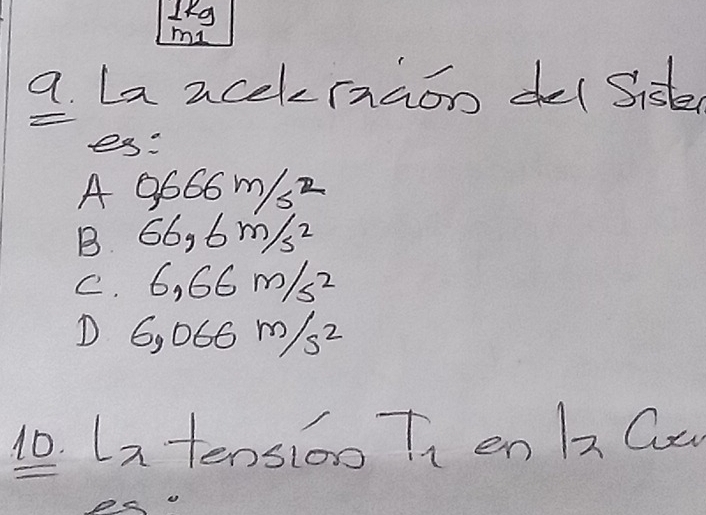 1kg
m1
9. La aceleración del Sistem
es:
A 0,666 m/s²
B. 66,6 m/s²
C. 6,66 m/s²
D 6,066 m/s²
10. La tensión T1 en la Cuer
es: